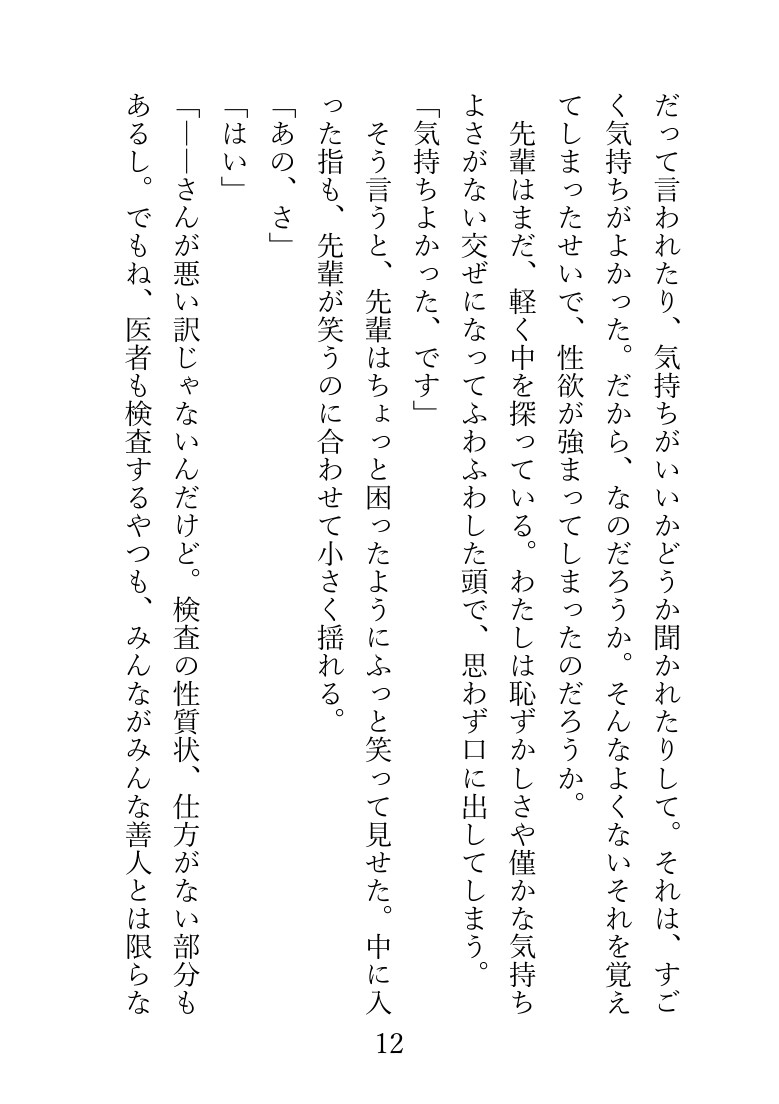 だって言われたり、気持ちがいいかどうか聞かれたりして。それは、すご
く気持ちがよかった。だから、なのだろうか。そんなよくないそれを覚え
てしまったせいで、性欲が強まってしまったのだろうか。
　先輩はまだ、軽く中を探っている。わたしは恥ずかしさや僅かな気持ち
よさがない交ぜになってふわふわした頭で、思わず口に出してしまう。
「気持ちよかった、です」
　そう言うと、先輩はちょっと困ったようにふっと笑って見せた。中に入
った指も、先輩が笑うのに合わせて小さく揺れる。
「あの、さ」
「はい」
「――さんが悪い訳じゃないんだけど。検査の性質状、仕方がない部分も
あるし。でもね、医者も検査するやつも、みんながみんな善人とは限らな
12